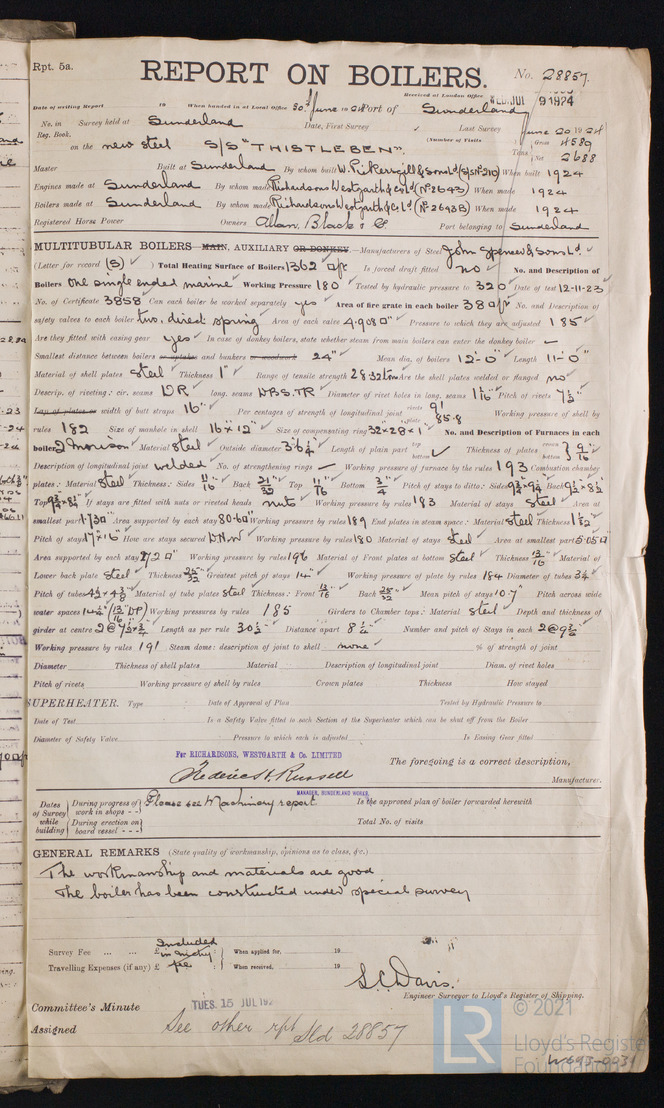 Rpt. 5a.
REPORT ON BOILERS.
No. 28857.
Received at London Office WED. JUL 9 1924
Date of writing Report 19 When handed in at Local Office 30th June 1924 Port of Sunderland
No. in Reg. Book. Survey held at Sunderland Date, First Survey Last Survey June 20 1924
(Number of Visits )
on the new steel S/S "THISTLEBEN". Tons Gross 4589 Net 2688
Master Built at Sunderland By whom built W. Pickersgill & Sons Ld (S/S No 210) When built 1924
Engines made at Sunderland By whom made Richardsons Westgarth & Co Ld (No 2643) When made 1924
Boilers made at Sunderland By whom made Richardsons Westgarth & Co Ld (No 2643B) When made 1924
Registered Horse Power Owners Allan, Black & Co Port belonging to Sunderland
MULTITUBULAR BOILERS MAIN, AUXILIARY OR DONKEY. Manufacturers of Steel John Spencer & Sons Ld.
(Letter for record (S) ) Total Heating Surface of Boilers 1362 □ft Is forced draft fitted no No. and Description of
Boilers One single ended marine Working Pressure 180 Tested by hydraulic pressure to 320 Date of test 12-11-23
No. of Certificate 3858 Can each boiler be worked separately yes Area of fire grate in each boiler 38 □ft No. and Description of
safety valves to each boiler two, direct spring Area of each valve 4.908 □" Pressure to which they are adjusted 185
Are they fitted with easing gear yes In case of donkey boilers, state whether steam from main boilers can enter the donkey boiler —
Smallest distance between boilers or uptakes and bunkers or woodwork 24" Mean dia. of boilers 12'-0" Length 11'-0"
Material of shell plates Steel Thickness 1" Range of tensile strength 28.32 tons Are the shell plates welded or flanged no
Descrip. of riveting: cir. seams DR long. seams DBS.TR Diameter of rivet holes in long. seams 1 1/16 Pitch of rivets 7 1/2"
Lap of plates or width of butt straps 16" Per centages of strength of longitudinal joint rivets 91 plate 85.8 Working pressure of shell by
rules 182 Size of manhole in shell 16" x 12" Size of compensating ring 32" x 28" x 1" No. and Description of Furnaces in each
boiler 2 Morison Material Steel Outside diameter 3' 6 1/4" Length of plain part top bottom Thickness of plates crown bottom 9/16"
Description of longitudinal joint welded No. of strengthening rings — Working pressure of furnace by the rules 193 Combustion chamber
plates: Material Steel Thickness: Sides 11/16" Back 21/32" Top 11/16" Bottom 3/4" Pitch of stays to ditto: Sides 9 3/4 x 9 1/4 Back 9 1/2 x 8 1/2
Top 9 3/4 x 8 1/4 If stays are fitted with nuts or riveted heads nuts Working pressure by rules 183 Material of stays Steel Area at
smallest part 1.73 □" Area supported by each stay 80.6 □" Working pressure by rules 189 End plates in steam space: Material Steel Thickness 1 1/32"
Pitch of stays 17" x 16" How are stays secured D.N.W Working pressure by rules 180 Material of stays Steel Area at smallest part 5.05 □"
Area supported by each stay 272 □" Working pressure by rules 196 Material of Front plates at bottom Steel Thickness 13/16" Material of
Lower back plate Steel Thickness 25/32" Greatest pitch of stays 14" Working pressure of plate by rules 184 Diameter of tubes 3 1/4"
Pitch of tubes 4 1/2 x 4 3/8 Material of tube plates Steel Thickness: Front 13/16" Back 25/32" Mean pitch of stays 10.7" Pitch across wide
water spaces 14 1/2" (13/16" DP) Working pressures by rules 185 Girders to Chamber tops: Material Steel Depth and thickness of
girder at centre 2 @ 7 1/2 x 3/4 Length as per rule 30 1/2" Distance apart 8 1/4" Number and pitch of Stays in each 2 @ 9 3/4"
Working pressure by rules 191 Steam dome: description of joint to shell none % of strength of joint
Diameter Thickness of shell plates Material Description of longitudinal joint Diam. of rivet holes
Pitch of rivets Working pressure of shell by rules Crown plates Thickness How stayed
SUPERHEATER. Type Date of Approval of Plan Tested by Hydraulic Pressure to
Date of Test Is a Safety Valve fitted to each Section of the Superheater which can be shut off from the Boiler
Diameter of Safety Valve Pressure to which each is adjusted Is Easing Gear fitted
For RICHARDSONS, WESTGARTH & Co. LIMITED
The foregoing is a correct description,
Frederic H. Russell Manufacturer.
MANAGER, SUNDERLAND WORKS.
Dates of Survey while building
During progress of work in shops - - Please see Machinery report Is the approved plan of boiler forwarded herewith
During erection on board vessel - - - Total No. of visits
GENERAL REMARKS (State quality of workmanship, opinions as to class, &c.)
The workmanship and materials are good
The boiler has been constructed under special survey
Survey Fee ... ... £ Included in mchy When applied for, 19
Travelling Expenses (if any) £ fee When received, 19
S.C. Davis.
Engineer Surveyor to Lloyd's Register of Shipping.
Committee's Minute TUES. 15 JUL 192
Assigned See other rpt Sld 28857
LR © 2021
Lloyd's Register
Foundation
W693-0031